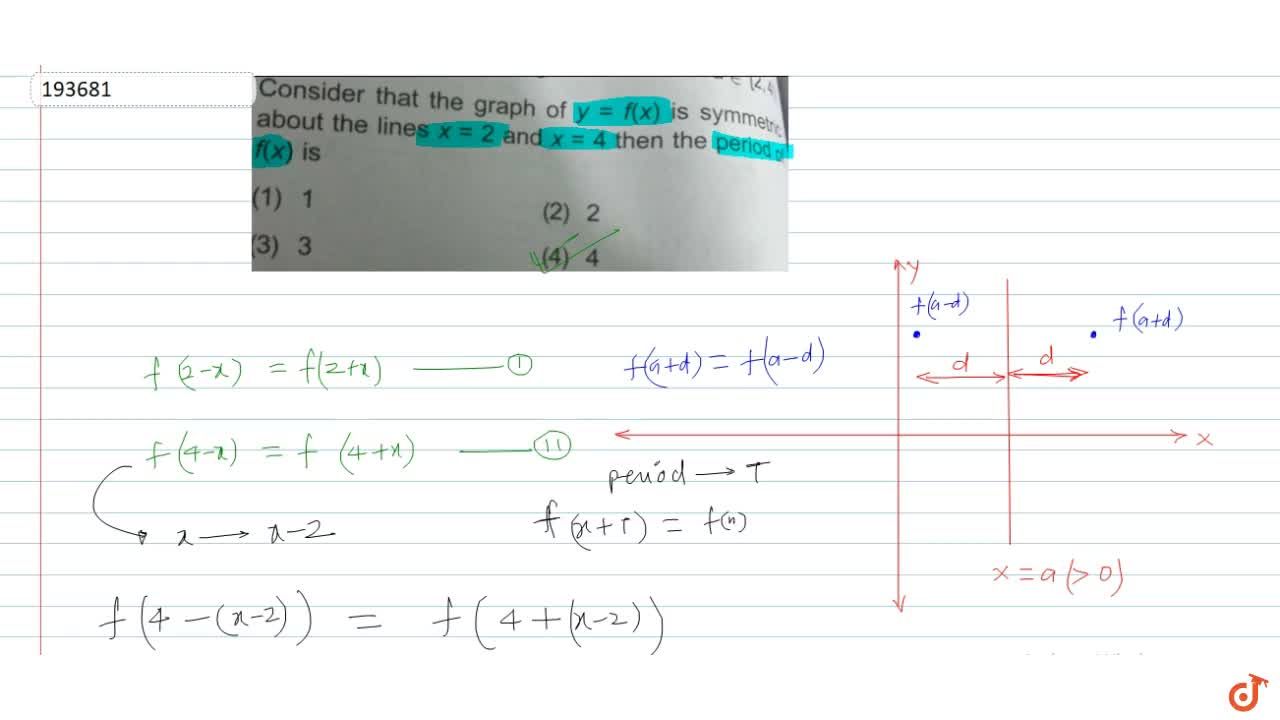 193681
∈ [2,4
Consider that the graph of y = f(x) is symmetric
about the lines x = 2 and x = 4 then the period of
f(x) is
(1) 1
(2) 2
(3) 3
(4) 4
y
f(a-d)
f(a+d)
f(2-x) = f(2+x) ——— I
f(a+d) = f(a-d)
d
d
x
f(4-x) = f(4+x) ——— II
period → T
x → x-2
f(x+T) = f(x)
x = a (>0)
f(4-(x-2)) = f(4+(x-2))